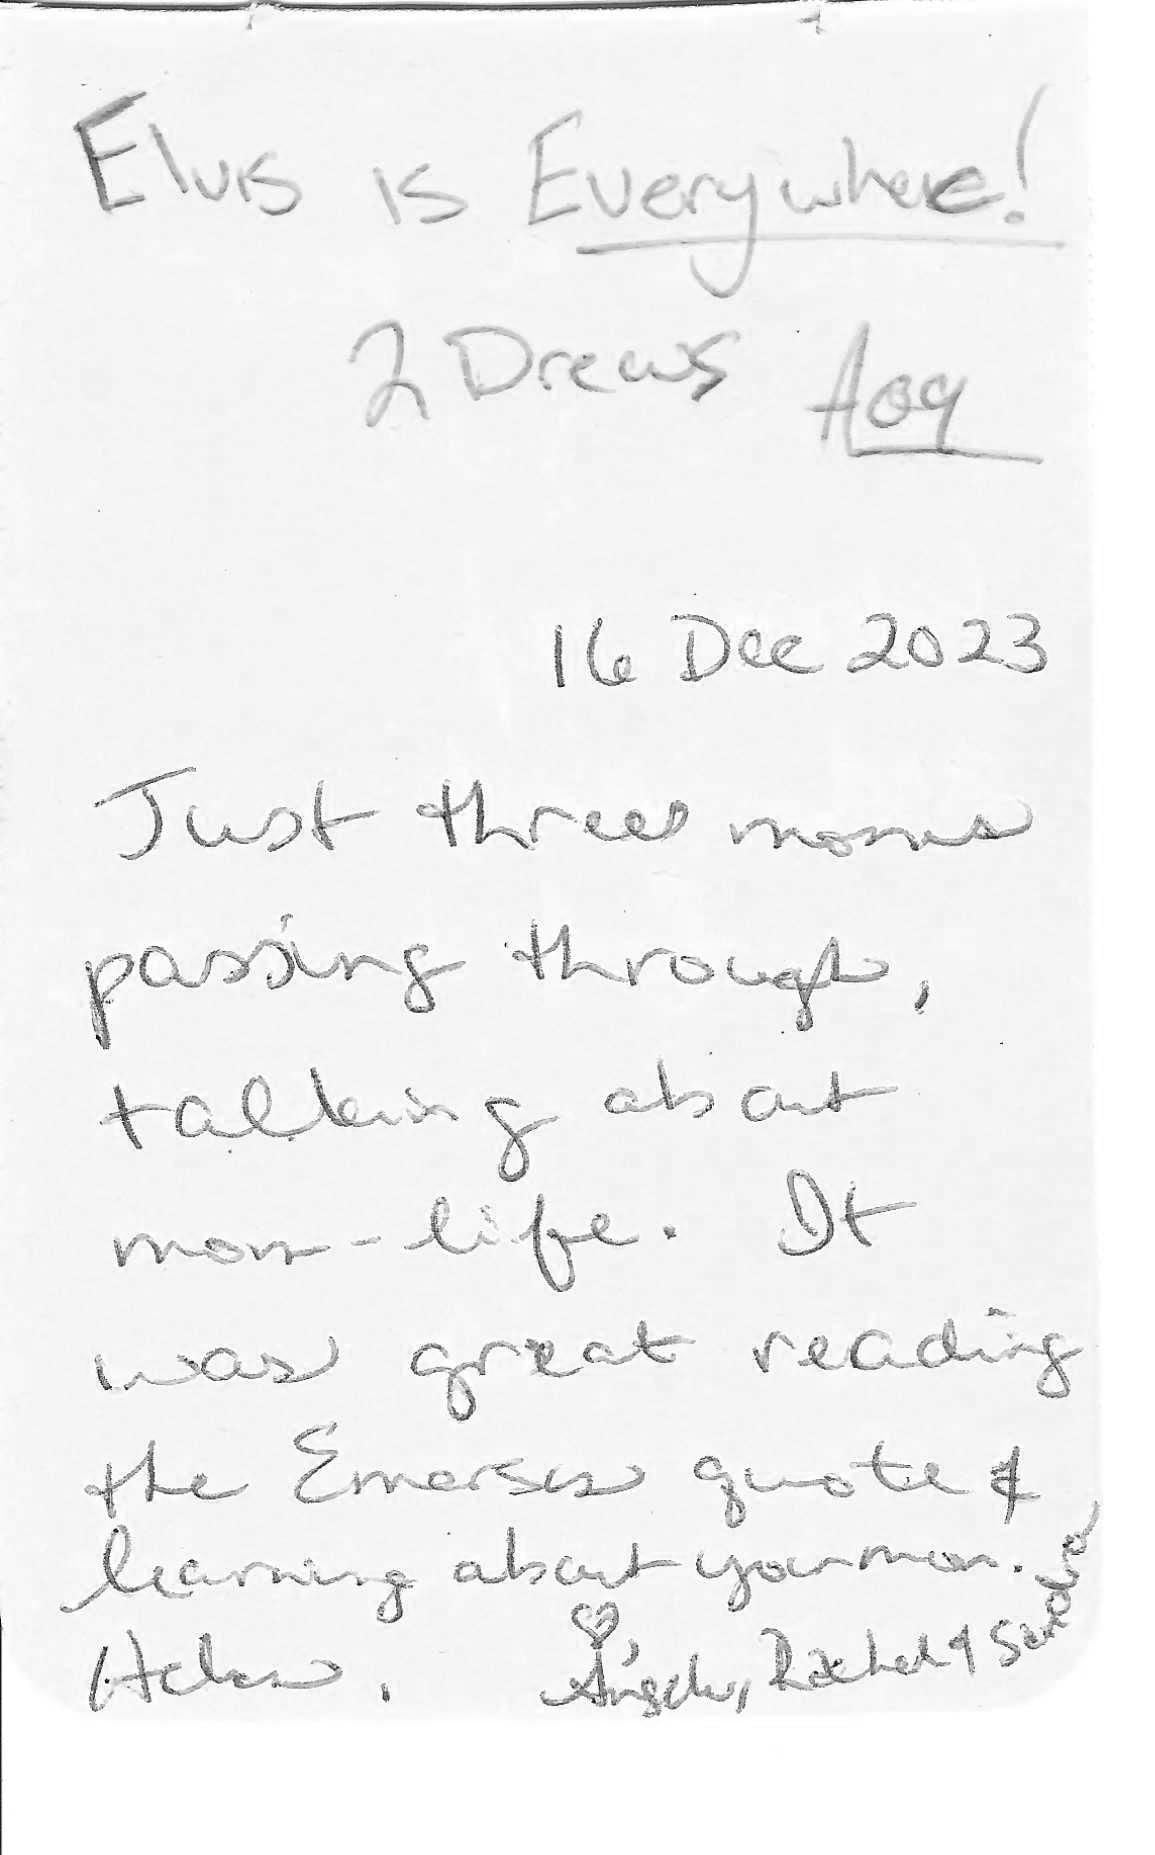 Elvis is Everywhere!
2 Drews
16 Dec 2023
Just three moms
passing through,
talking about
mom-life. It
was great reading
the Emerson quote &
learning about your mom.
Helen. Angela, Rachel &